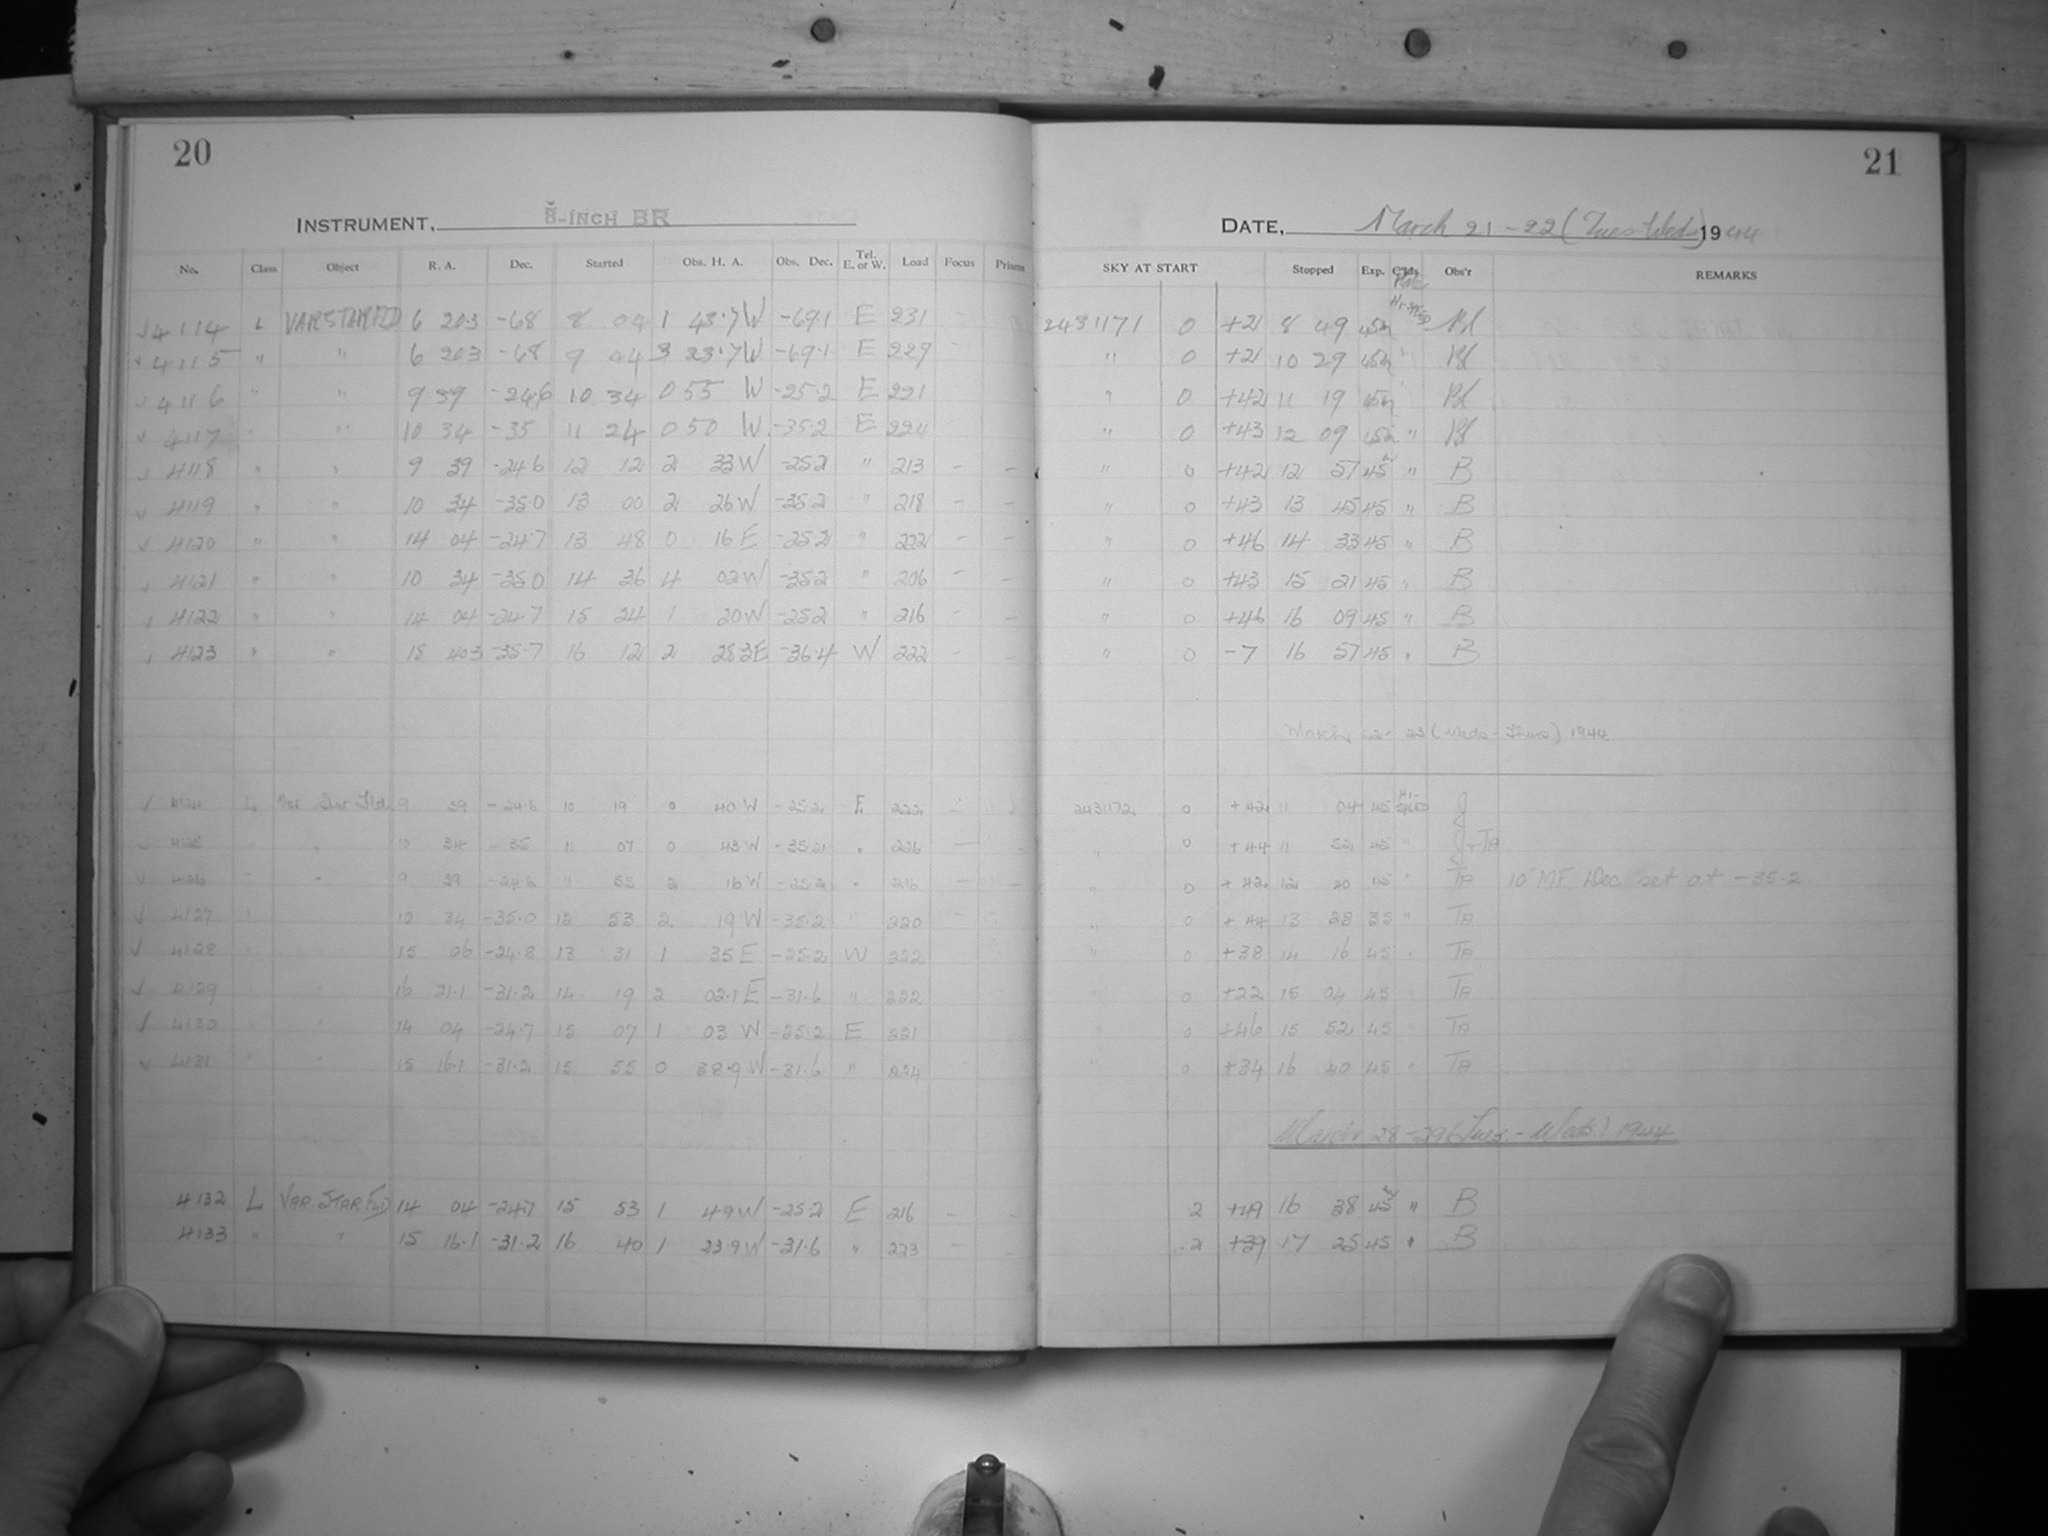 20
INSTRUMENT, 8-INCH BR
No. Class Object R. A. Dec. Started Obs. H. A. Obs. Dec. Tel. E. or W. Load Focus Prisms
4114 L VAR STAR FLD 6 20.3 -68 8 04 1 43.7 W -69.1 E 231 -
4115 " " 6 20.3 -68 9 44 3 23.7 W -69.1 E 229
4116 " " 9 39 -24.6 10 34 0 55 W -25.2 E 221
4117 " " 10 34 -35 11 24 0 50 W -35.2 E 224
4118 " " 9 39 -24.6 12 12 2 33 W -25.2 " 213 - -
4119 " " 10 34 -35.0 13 00 2 26 W -35.2 " 218 - -
4120 " " 14 04 -24.7 13 48 0 16 E -25.2 " 222 - -
4121 " " 10 34 -35.0 14 36 4 02 W -35.2 " 206 - -
4122 " " 14 04 -24.7 15 24 1 20 W -25.2 " 216 - -
4123 " " 18 40.3 -35.7 16 12 2 28.3 E -36.4 W 222 - -
4124 L Var Star Fld 9 39 -24.6 10 19 0 40 W -25.2 E 222 -
4125 " " 10 34 -35 11 07 0 43 W -35.2 " 226 - -
4126 " " 9 39 -24.6 11 55 2 16 W -25.2 " 216 - -
4127 10 34 -35.0 12 53 2 19 W -35.2 " 220
4128 15 06 -24.8 13 31 1 35 E -25.2 W 222
4129 16 21.1 -31.2 14 19 2 02.1 E -31.6 " 222
4130 14 04 -24.7 15 07 1 03 W -25.2 E 221
4131 15 16.1 -31.2 15 55 0 38.9 W -31.6 " 224
4132 L VAR STAR FLD 14 04 -24.7 15 53 1 49 W -25.2 E 216 - -
4133 " " 15 16.1 -31.2 16 40 1 23.9 W -31.6 " 223 - -
21
DATE, March 21-22 (Tues-Wed) 1944
SKY AT START Stopped Exp. Obs'r REMARKS
2431171 0 +21 8 49 45m Hi-Speed Bl
" 0 +21 10 29 45m " Bl
" 0 +42 11 19 45m Bl
" 0 +43 12 09 45m " Bl
" 0 +42 12 57 45 " B
" 0 +43 13 45 45 " B
" 0 +46 14 33 45 " B
" 0 +43 15 21 45 " B
" 0 +46 16 09 45 " B
" 0 -7 16 57 45 " B
March 22-23 (Weds-Thurs) 1944
2431172 0 +42 11 04 45 Hi-Speed J
" 0 +44 11 52 45 " J+Ta
" 0 +42 12 40 45 " Ta 10" MF Dec set at -35.2
" 0 +44 13 28 35 " Ta
" 0 +38 14 16 45 " Ta
" 0 +22 15 04 45 Ta
0 +46 15 52 45 Ta
" 0 +34 16 40 45 " Ta
March 28-29 (Tues-Weds.) 1944
2 +49 16 38 45m " B
2 +39 17 25 45 " B